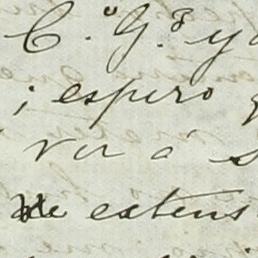 C.º G.ª y
; espero
ver á S
de extens